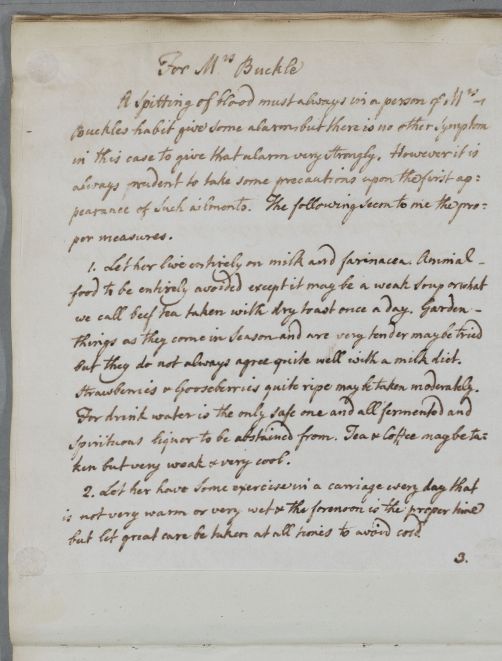 For Mrs Buckle
A Spitting of blood must always in a person of Mrs
Buckles habit give some alarm but there is no other Symptom
in this case to give that alarm very strongly. However it is
always prudent to take some precautions upon the first ap=
pearance of such ailments. The following seem to me the pro=
per measures.
1. Let her live entirely on milk and farinacea. Animal
food to be entirely avoided except it may be a weak soup or what
we call beef tea taken with dry toast once a day. Garden
things as they come in Season and are very tender may be tried
but they do not always agree quite well with a milk diet.
Strawberries & Gooseberries quite ripe may be taken moderately.
For drink water is the only safe one and all fermented and
Spirituous liquor to be abstained from. Tea & Coffee may be ta=
ken but very weak & very cool.
2. Let her have some exercise in a carriage every day that
is not very warm or very wet & the forenoon is the proper time
but let great care be taken at all times to avoid cold.
3.